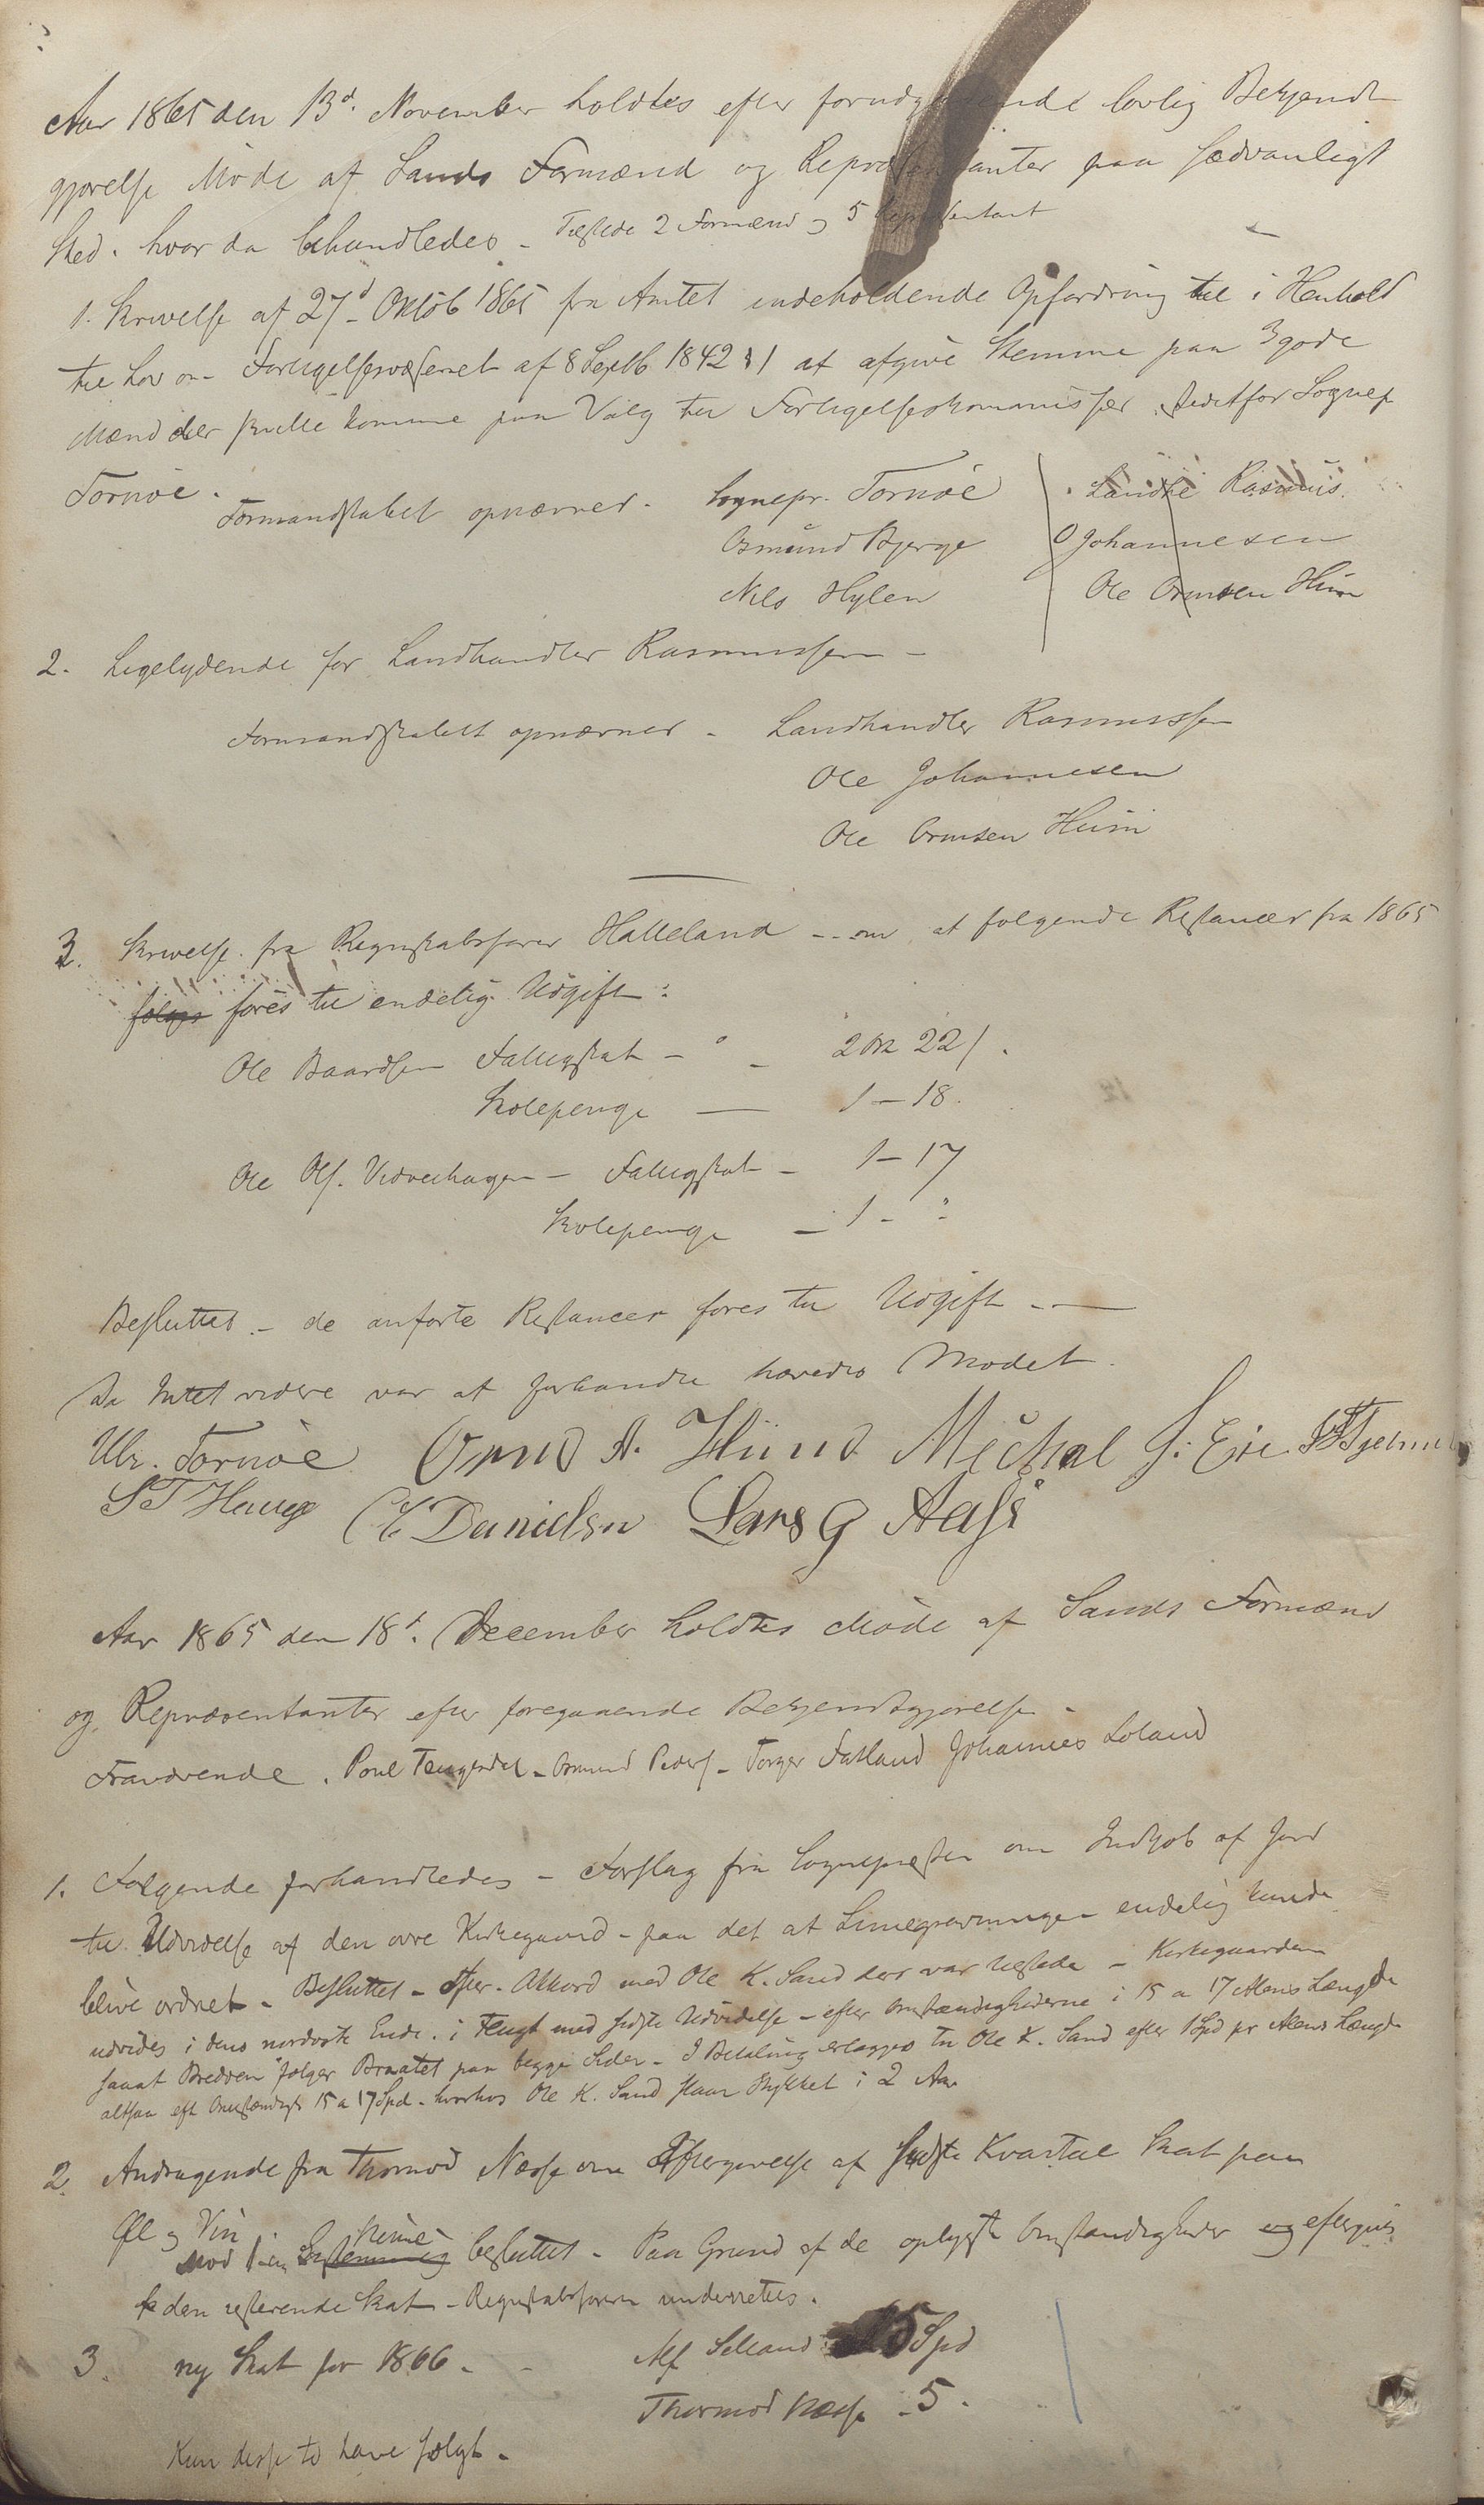 Aar 1865 den 13d. November holdtes efter forudg ende lovlig Bekjendt
gjørelse Møde af Sands Formænd og Repræsentanter paa sædvanligt
Sted. hvor da behandledes – Tilstede 2 Formænd og 5 Repræsentant
1. Skrivelse af 27d Oktob 1865 fra Amtet indeholdende Opfordring til i Henhold
til Lov om Forligelsesvæsenet af 8 Septb 1842 § 1 at afgive Stemme paa 3 gode
Mænd der skulle komme paa Valg til Forligelseskommissær istedetfor Sognep
Tornøe.
Formandskabet opnævner. Sognepr. Tornøe
Osmund Bjerge
Nils Hylen
Landhe Rasmus.
O Johannesen
Ole Ormsen Hiim
2. Ligelydende for Landhandler Rasmussen –
Formandskabet opnævner – Landhandler Rasmussen
Ole Johannesen
Ole Ormsen Hiim
3. Skrivelse fra Regnskabsfører Halleland – om at følgende Restancer fra 1865
føres til endelig Udgift:
Ole Baardsen Fattigskat – 2 Ort 22 s.
Skolepenge — 1 – 18.
Ole Ols. Vidvedhagen – Fattigskat – 1 – 17
Skolepenge – 1 – "
Besluttet – de anførte Restancer føres til Udgift –
Da Intet videre var at forhandle hævedes Mødet.
Ulr. Tornøe Ormd A. Hiim Michal J. Eie
S T Hauge C E Danielsen Lars G Aase
Aar 1865 den 18d. December holdtes Møde af Sands Formænd
og Repræsentanter efter foregaaende Bekjendtgjørelse –
Fraværende. Poul Tengesdal – Osmund Peders – Torger Fatland Johannes Løland
1. Følgende forhandledes – Forslag fra Sognepresten om Indkjøb af Jord
til Udvidelse af den øvre Kirkegaard – paa det at Liniegravningen endelig kunde
blive ordnet – Besluttet – Efter Akkord med Ole K. Sand der var tilstede – Kirkegaarden
udvides i dens nordvste Ende i Flugt med sidste Udvidelse – efter Omstændighederne i 15 a 17 Alens Længde
samt Bredden følger Braatet paa begge Sider – I Betaling erlægges til Ole K. Sand efter 1 Spd pr Alens Længde
altsaa eft Omstændigh 15 a 17 Spd – hvorhos Ole K. Sand slaar Stykket i 2 Aar
2. Andragende fra Thormod Næsse om Eftergivelse af sidste Kvartal Skat paa
Øl og Vin
Mod 1 Stemme besluttet – Paa Grund af de oplyste Omstændigheder eftergives
den resterende Skat – Regnskabsføreren underrettes.
3. ny Skat for 1866 – Alf Selland 5 Spd
Thormod Næsse – 5 –
Kun disse to have solgt –